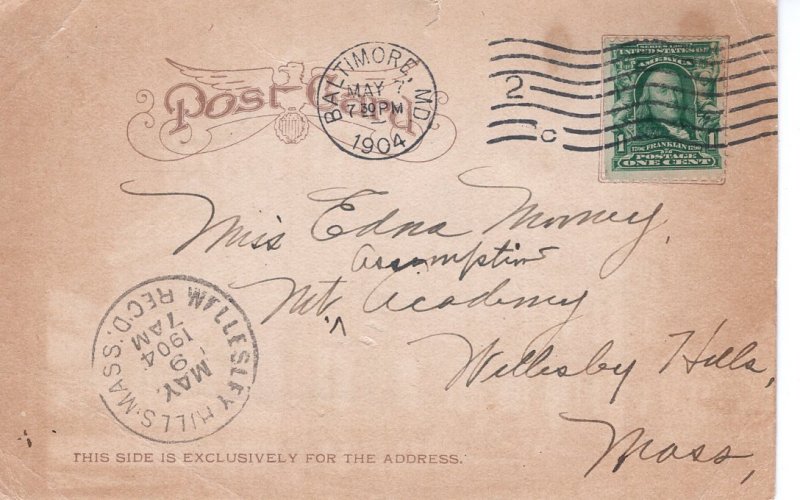 Post Card
BALTIMORE, MD.
MAY 7
7 30 PM
1904
2
C
SERIES 1902
UNITED STATES OF
AMERICA
1 1
1706 FRANKLIN 1790
POSTAGE
ONE CENT
Miss Edna Mooney,
Assumption
Mt ^ Academy
Wellesby Hills,
Mass,
WELLESLEY HILLS. MASS.
REC'D.
7 AM
1904
9
MAY
THIS SIDE IS EXCLUSIVELY FOR THE ADDRESS.